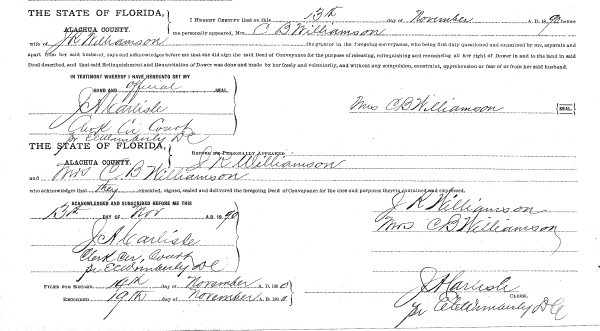 THE STATE OF FLORIDA,
ALACHUA COUNTY.
I HEREBY CERTIFY that on this 13th day of November A. D. 1890 before
me personally appeared, Mrs. C B Williamson
wife of J K Williamson the grantor in the foregoing conveyance, who being first duly questioned and examined by me, separate and
apart from her said husband, did acknowledge before me that she did sign the said Deed of Conveyance for the purpose of releasing, relinquishing and renouncing all her right of Dower in and to the land in said
Deed described, and that said Relinquishment and Renunciation of Dower was done and made by her freely and voluntarily, and without any compulsion, constraint, apprehension or fear of or from her said husband.
IN TESTIMONY WHEREOF I HAVE HEREUNTO SET MY
HAND AND official SEAL
J A Carlisle
Clerk Cir Court
pr E E Wimberly D C
Mrs C B Williamson SEAL
THE STATE OF FLORIDA,
ALACHUA COUNTY.
BEFORE ME PERSONALLY APPEARED J K Williamson
and Mrs C. B Williamson
who acknowledges that they executed, signed, sealed and delivered the foregoing Deed of Conveyance for the uses and purposes therein contained and expressed.
ACKNOWLEDGED AND SUBSCRIBED BEFORE ME THIS
13th DAY OF Nov A. D. 1890
J A Carlisle
Clerk Cir, Court
pr E E Wimberly D C
J K Williamson
Mrs C B Williamson
FILED FOR RECORD 19th day of November A. D. 1890
RECORDED 19th day of November A. D. 1890
J A Carlisle
CLERK.
pr E E Wimberly D C